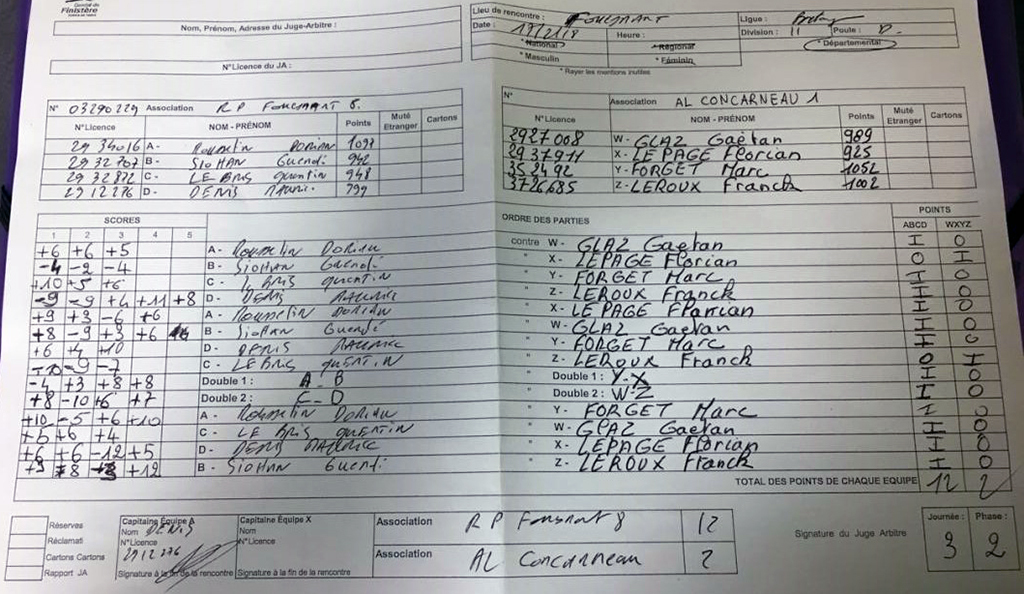 Finistère
Nom, Prénom, Adresse du Juge-Arbitre :
N°Licence du JA :
Lieu de rencontre : FOUESNANT Ligue :
Date : Heure : Division : 11 Poule :
* National * Régional * Départemental
* Masculin * Féminin
* Rayer les mentions inutiles
N° 03290229 Association RP FOUESNANT 8
N°Licence NOM - PRÉNOM Points Muté Etranger Cartons
A- DORIAN
2932707 B- SIOHAN 942
2932872 C- LE BRIS quentin 948
2912276 D- DENIS 799
N° Association AL CONCARNEAU 1
N°Licence NOM - PRÉNOM Points Muté Etranger Cartons
2927008 W- GLAZ Gaëtan 989
2937911 X- LE PAGE Florian 925
352492 Y- FORGET Marc 1052
3726685 Z- LEROUX Franck 1002
SCORES ORDRE DES PARTIES POINTS
1 2 3 4 5 ABCD WXYZ
+6 +6 +5 A- DORIAN contre W- GLAZ Gaetan I 0
-4 -2 -4 B- SIOHAN " X- LEPAGE Florian 0 I
+10 +5 +6 C- LE BRIS quentin " Y- FORGET Marc I 0
-9 -9 +4 +11 +8 D- DENIS " Z- LEROUX Franck I 0
+9 +3 -6 +6 A- DORIAN " X- LE PAGE Florian I 0
+8 -9 +3 +6 B- SIOHAN " W- GLAZ Gaetan I 0
+6 +4 +10 D- DENIS " Y- FORGET Marc I 0
-9 -7 C- LE BRIS QUENTIN " Z- LEROUX Franck 0 I
-4 +3 +8 +8 Double 1 : A-B " Double 1 : Y-X I 0
+8 -10 +6 +7 Double 2 : C-D " Double 2 : W-Z I 0
+10 -5 +6 +10 A- DORIAN " Y- FORGET Marc I 0
+6 +4 C- LE BRIS QUENTIN " W- GLAZ Gaetan I 0
+6 +6 -12 +5 D- DENIS " X- LEPAGE Florian I 0
+8 +12 B- SIOHAN " Z- LEROUX Franck I 0
TOTAL DES POINTS DE CHAQUE EQUIPE 12 2
Réserves
Réclamati
Cartons Cartons
Rapport JA
Capitaine Équipe A
Nom DENIS
N°Licence
2912276
Signature à la fin de la rencontre
Capitaine Equipe X
Nom
N°Licence
Signature à la fin de la rencontre
Association RP Fouesnant 8 12
Association AL Concarneau 2
Signature du Juge Arbitre
Journée : 3 Phase : 2